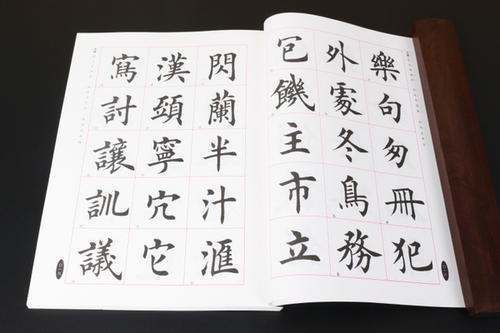 樂句匆冊犯
外冬鳥務
包饑主市立
閃蘭半汁滙
漢頭寧穴它
寫討讓訓議